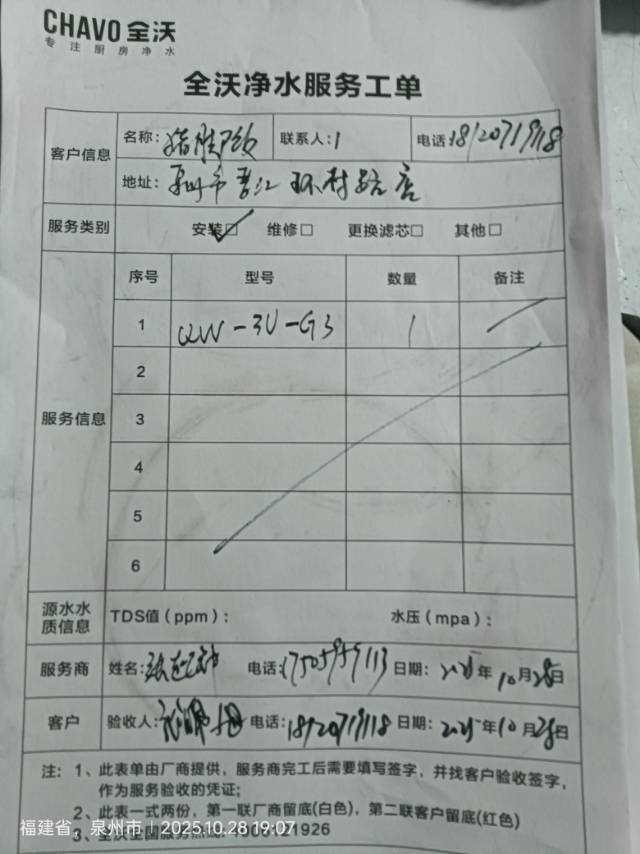 CHAVO 全沃
专注厨房净水
全沃净水服务工单
客户信息
名称：猪脚
联系人：/
电话 18120719118
地址：泉州市晋江环村路店
服务类别
安装☑ 维修□ 更换滤芯□ 其他□
服务信息
序号 型号 数量 备注
1 QW-3U-G3 1
2
3
4
5
6
源水水质信息
TDS值（ppm）： 水压（mpa）：
服务商 姓名： 电话：17505959113 日期：2025年10月28日
客户 验收人： 电话：18120719118 日期：2025年10月28日
注：1、此表单由厂商提供，服务商完工后需要填写签字，并找客户验收签字，
作为服务验收的凭证；
2、此表一式两份，第一联厂商留底(白色)，第二联客户留底(红色)
3、全沃全国服务热线：
福建省，泉州市 | 2025.10.28 19:07